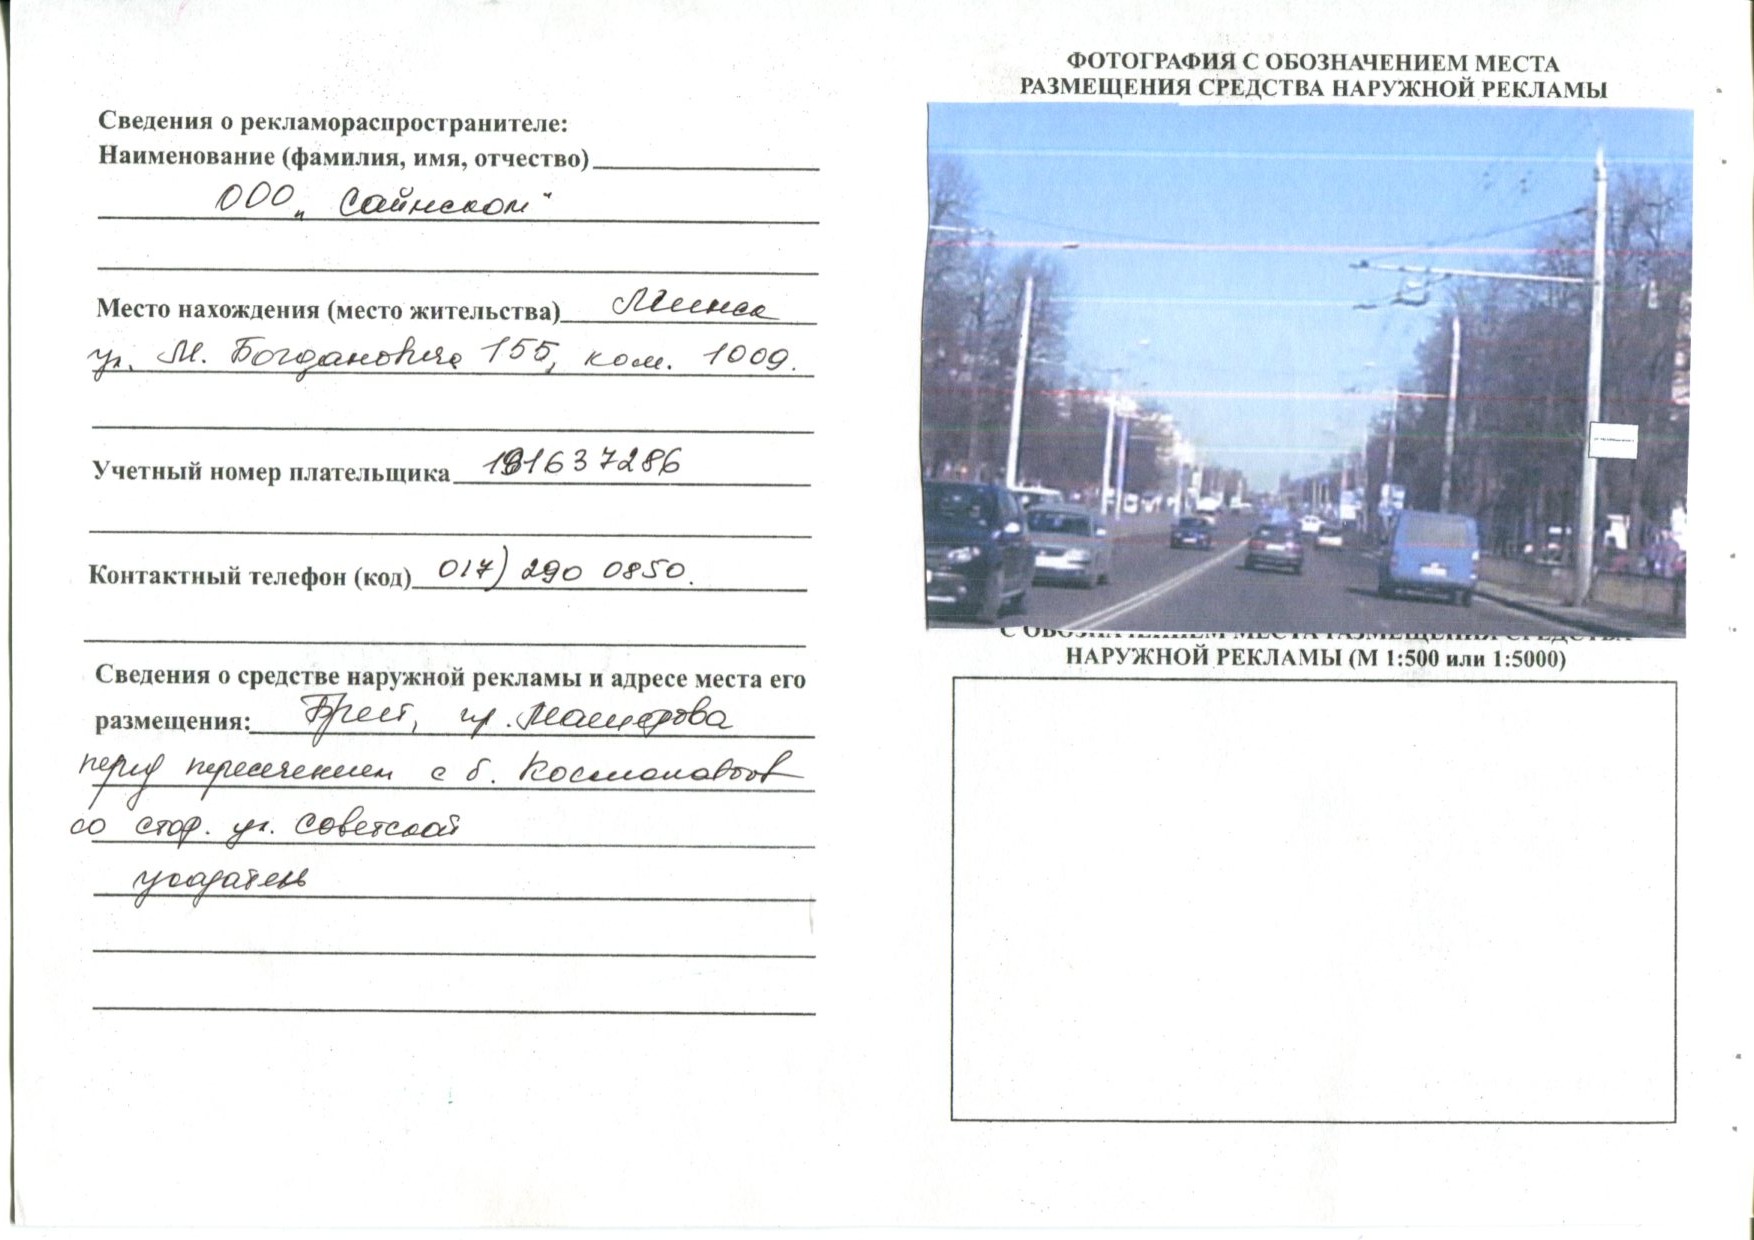 Сведения о рекламораспространителе:
Наименование (фамилия, имя, отчество)
ООО „Сайнском“
Место нахождения (место жительства) Минск
ул. М. Богдановича 155, ком. 1009.
Учетный номер плательщика 191637286
Контактный телефон (код) 017) 290 0850.
Сведения о средстве наружной рекламы и адресе места его
размещения: Брест, пр. Машерова
перед пересечением с б. Космонавтов
со стор. ул. Советской
указатель
ФОТОГРАФИЯ С ОБОЗНАЧЕНИЕМ МЕСТА
РАЗМЕЩЕНИЯ СРЕДСТВА НАРУЖНОЙ РЕКЛАМЫ
С ОБОЗНАЧЕНИЕМ МЕСТА РАЗМЕЩЕНИЯ СРЕДСТВА
НАРУЖНОЙ РЕКЛАМЫ (М 1:500 или 1:5000)